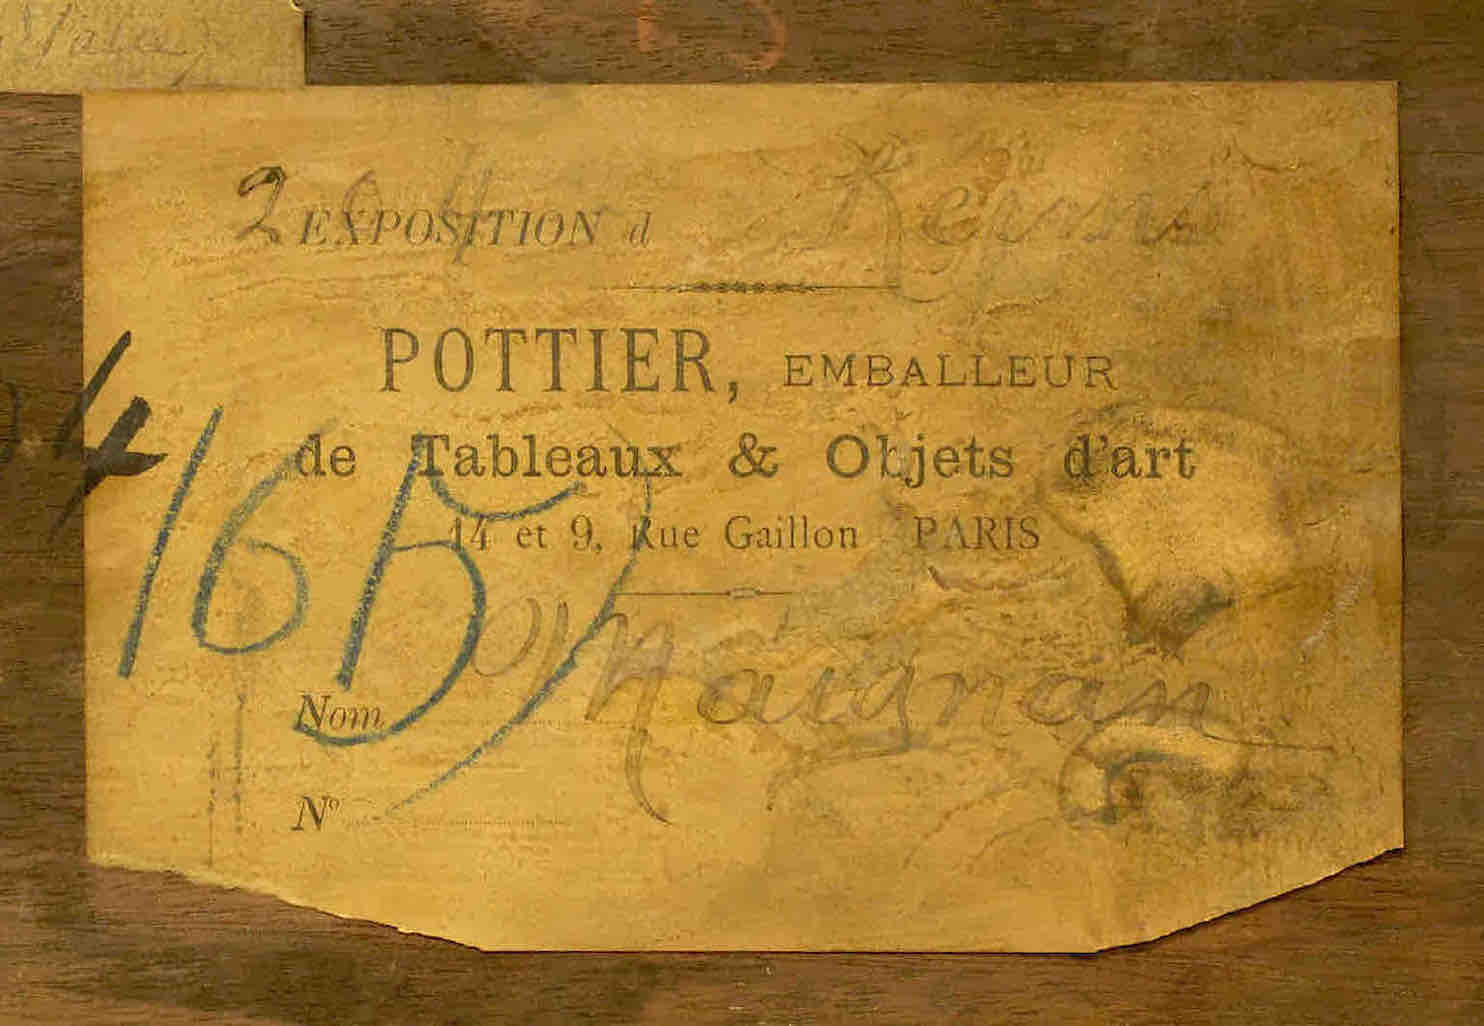 EXPOSITION d
POTTIER, EMBALLEUR
de Tableaux & Objets d'art
14 et 9, Rue Gaillon PARIS
165
Nom Maignan
N°